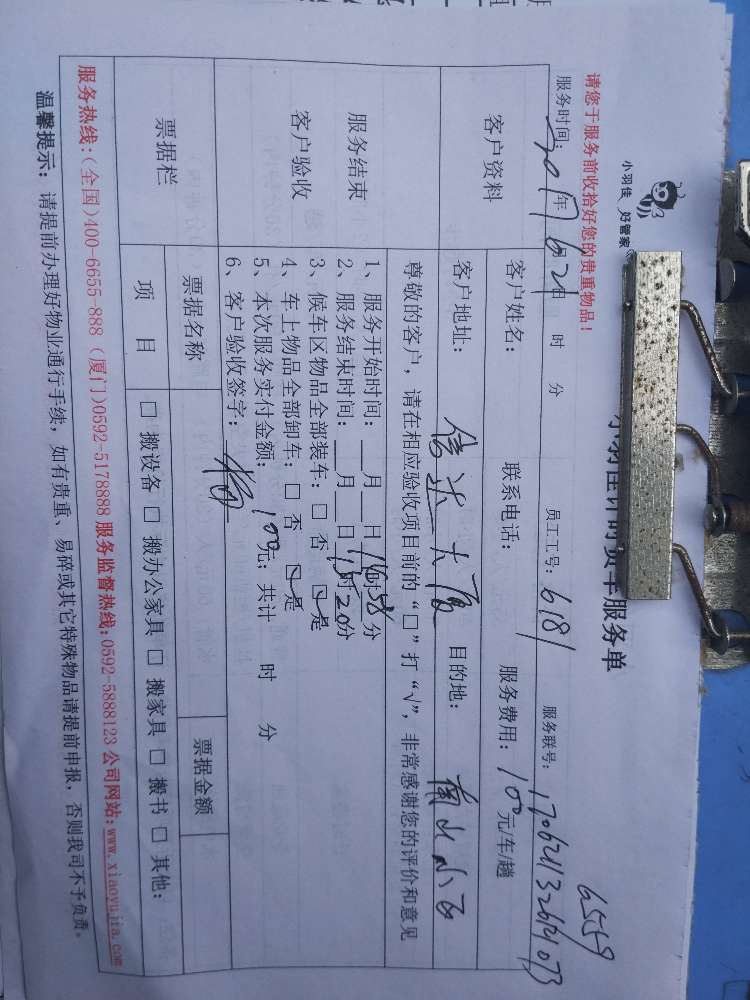 小羽佳 好管家
计时货车服务单
6559
请您于服务前收拾好您的贵重物品！
服务时间： 2017年 6月21日 时 分 员工工号： 6181 服务联号：
客户资料 客户姓名： 联系电话： 服务费用： 100元/车/趟
客户地址： 信达大厦 目的地：
尊敬的客户，请在相应验收项目前的“□”打“√”，非常感谢您的评价和意见
服务结束
客户验收
1、服务开始时间：__月__日14时58分
2、服务结束时间：__月__日15时20分
3、候车区物品全部装车：□ 否 ☑是
4、车上物品全部卸车：□ 否 ☑是
5、本次服务实付金额： 100元；共计 时 分
6、客户验收签字：
票据栏 票据名称 票据金额
项 目 □ 搬设备 □ 搬办公家具 □ 搬家具 □ 搬书 □ 其他:
服务热线:(全国)400-6655-888 (厦门)0592-5178888 服务监督热线:0592-5888123 公司网站:www.xiaoyujia.com
温馨提示：请提前办理好物业通行手续，如有贵重、易碎或其它特殊物品请提前申报，否则我司不予负责。